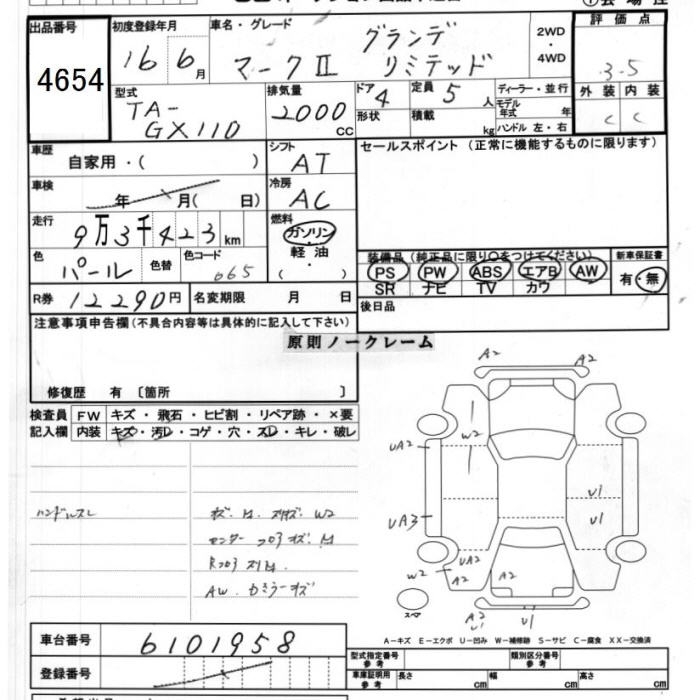 出品番号
4654
初度登録年月
16 6月
車名・グレード
マークⅡ グランデ リミテッド
2WD
・
4WD
評価点
3.5
外装 内装
C C
型式
TA-
GX110
排気量
2000
CC
ドア
4
形状
定員 5 人
積載 kg
ディーラー・並行
モデル
年式 年
ハンドル 左・右
車歴
自家用・( )
シフト
AT
車検
年 月( 日)
冷房
AC
走行
9万3千423km
燃料
ガソリン・
軽油・
( )
色
パール
色替
色コード
065
R券 12290円
名変期限 月 日
セールスポイント (正常に機能するものに限ります)
装備品(純正品に限り○をつけてください)
PS PW ABS エアB AW
SR ナビ TV カワ
新車保証書
有・無
後日品
注意事項申告欄(不具合内容等は具体的に記入して下さい)
原則ノークレーム
修復歴 有 〔箇所 〕
検査員 FW キズ・飛石・ヒビ割・リペア跡・×要
記入欄 内装 キズ・汚レ・コゲ・穴・スレ・キレ・破レ
ハンドルスレ
AW.
A2 A2
W2
UA2
UA3
U1
U1
UA2
W2 A2 A2
A2
U1 U1
スペア
A－キズ E－エクボ U－凹み W－補修跡 S－サビ C－腐食 XX－交換済
車台番号 6101958
登録番号
型式指定番号
参考
類別区分番号
参考
車庫証明用
参考
長さ cm
幅 cm
高さ cm